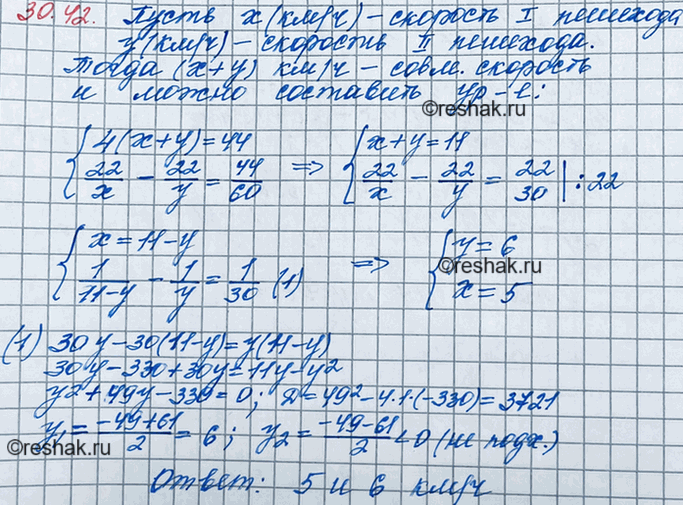 30.42. Пусть x (км/ч) – скорость I пешехода
y (км/ч) – скорость II пешехода.
Тогда (x+y) км/ч – совм. скорость
и можно составить ур-е:
©reshak.ru
{ 4(x+y)=44 => { x+y=11
22/x - 22/y = 44/60 22/x - 22/y = 22/30 | :22
{ x=11-y => { y=6
©reshak.ru
1/(11-y) - 1/y = 1/30 (1) x=5
(1) 30y-30(11-y)=y(11-y)
30y-330+30y=11y-y²
y²+49y-330=0; D=49²-4·1·(-330)=3721
y₁=(-49+61)/2=6; y₂=(-49-61)/2<0 (не подх.)
©reshak.ru
Ответ: 5 и 6 км/ч